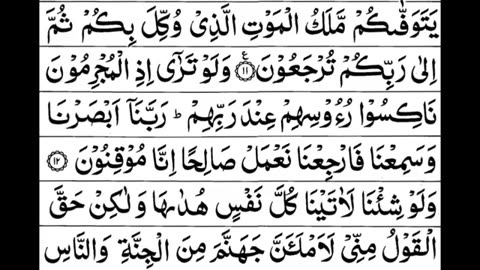 يَتَوَفّٰىكُمْ مَّلَكُ الْمَوْتِ الَّذِىْ وُكِّلَ بِكُمْ ثُمَّ
اِلٰى رَبِّكُمْ تُرْجَعُوْنَ ۝۱۱ ع وَلَوْ تَرٰٓى اِذِ الْمُجْرِمُوْنَ
نَاكِسُوْا رُءُوْسِهِمْ عِنْدَ رَبِّهِمْ ؕ رَبَّنَاۤ اَبْصَرْنَا
وَسَمِعْنَا فَارْجِعْنَا نَعْمَلْ صَالِحًا اِنَّا مُوْقِنُوْنَ ۝۱۲
وَلَوْ شِئْنَا لَاٰتَيْنَا كُلَّ نَفْسٍ هُدٰىهَا وَلٰكِنْ حَقَّ
الْقَوْلُ مِنِّىْ لَاَمْلَـَٔنَّ جَهَنَّمَ مِنَ الْجِنَّةِ وَالنَّاسِ